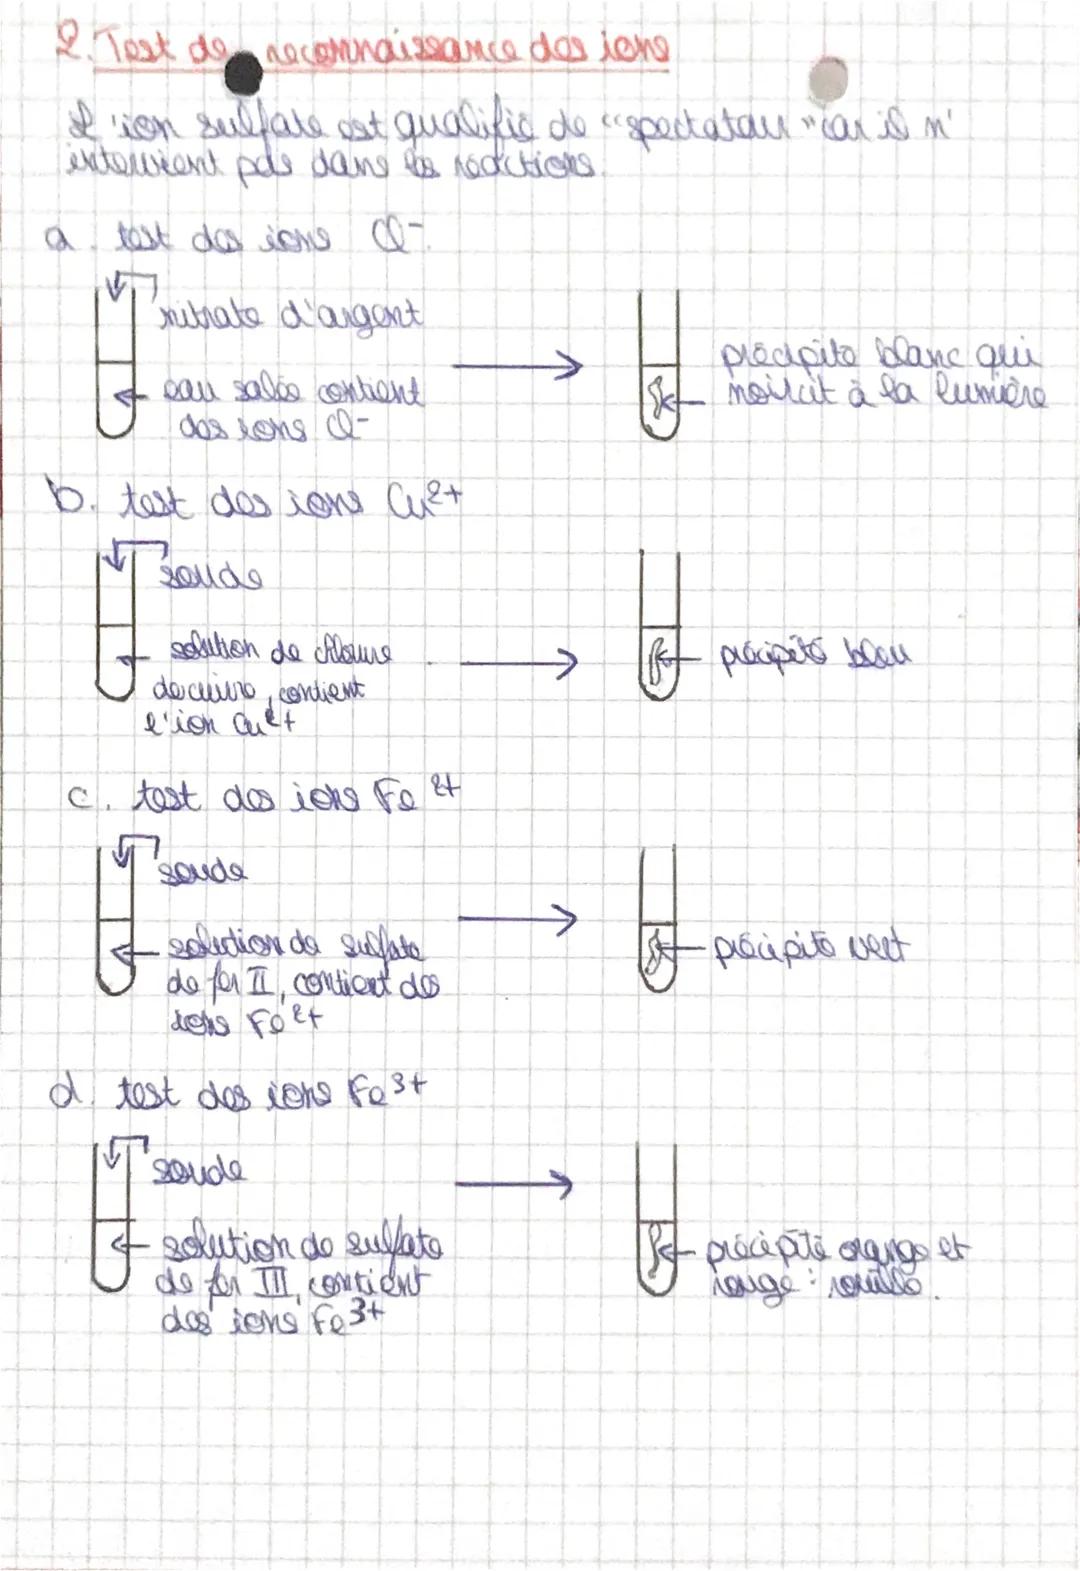 2. Test de reconnaissance des ions
L'ion sulfate est qualifié de "spectateur" car il n'
intervient pas dans les réactions.
a. test des ions Cl-.
nitrate d'argent
eau salée contient
des ions Cl-
précipité blanc qui
noircit à la lumière
b. test des ions Cu2+
soude
solution de chlorure
de cuivre, contient
l'ion Cu2+
précipité bleu
c. test des ions Fe 2+
soude
solution de sulfate
de fer II, contient des
ions Fe2+
précipité vert
d. test des ions Fe3+
soude
solution de sulfate
de fer III, contient
des ions Fe3+
précipité orange et
rouge : rouille.